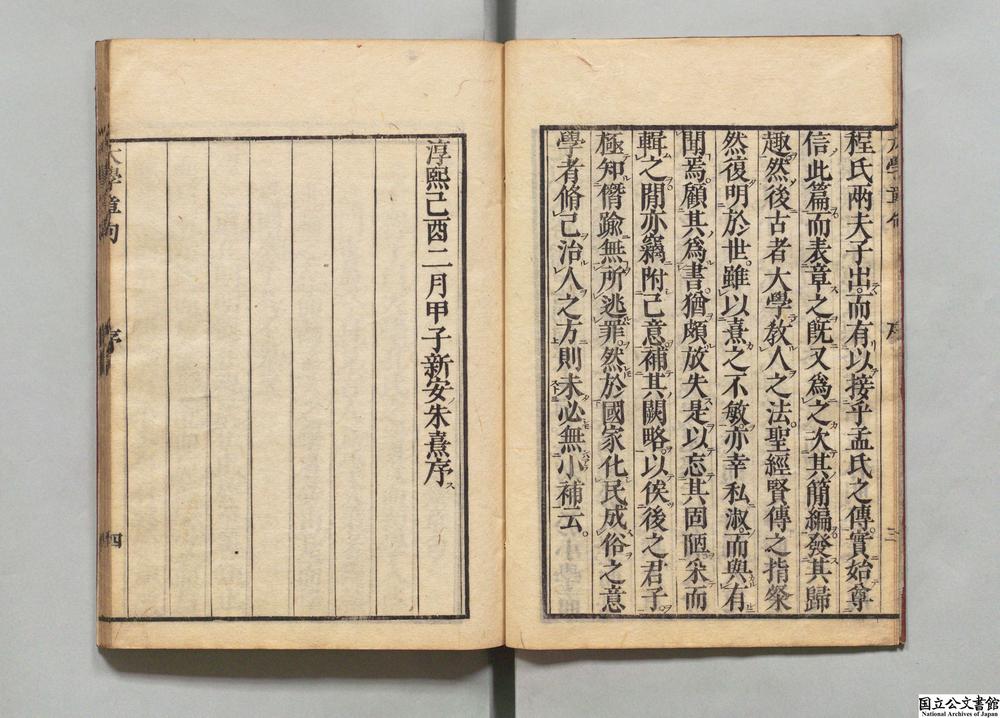 程氏兩夫子出而有以接乎孟氏之傳實始尊
信此篇而表章之既又爲之次其簡編發其歸
趣然後古者大學敎人之法聖經賢傳之指粲
然復明於世雖以熹之不敏亦幸私淑而與有
聞焉顧其爲書猶頗放失是以忘其固陋采而
輯之閒亦竊附己意補其闕略以俟後之君子
極知僭踰無所逃罪然於國家化民成俗之意
學者脩己治人之方則未必無小補云
淳熙己酉二月甲子新安朱熹序
大學章句
序
四
国立公文書館
National Archives of Japan